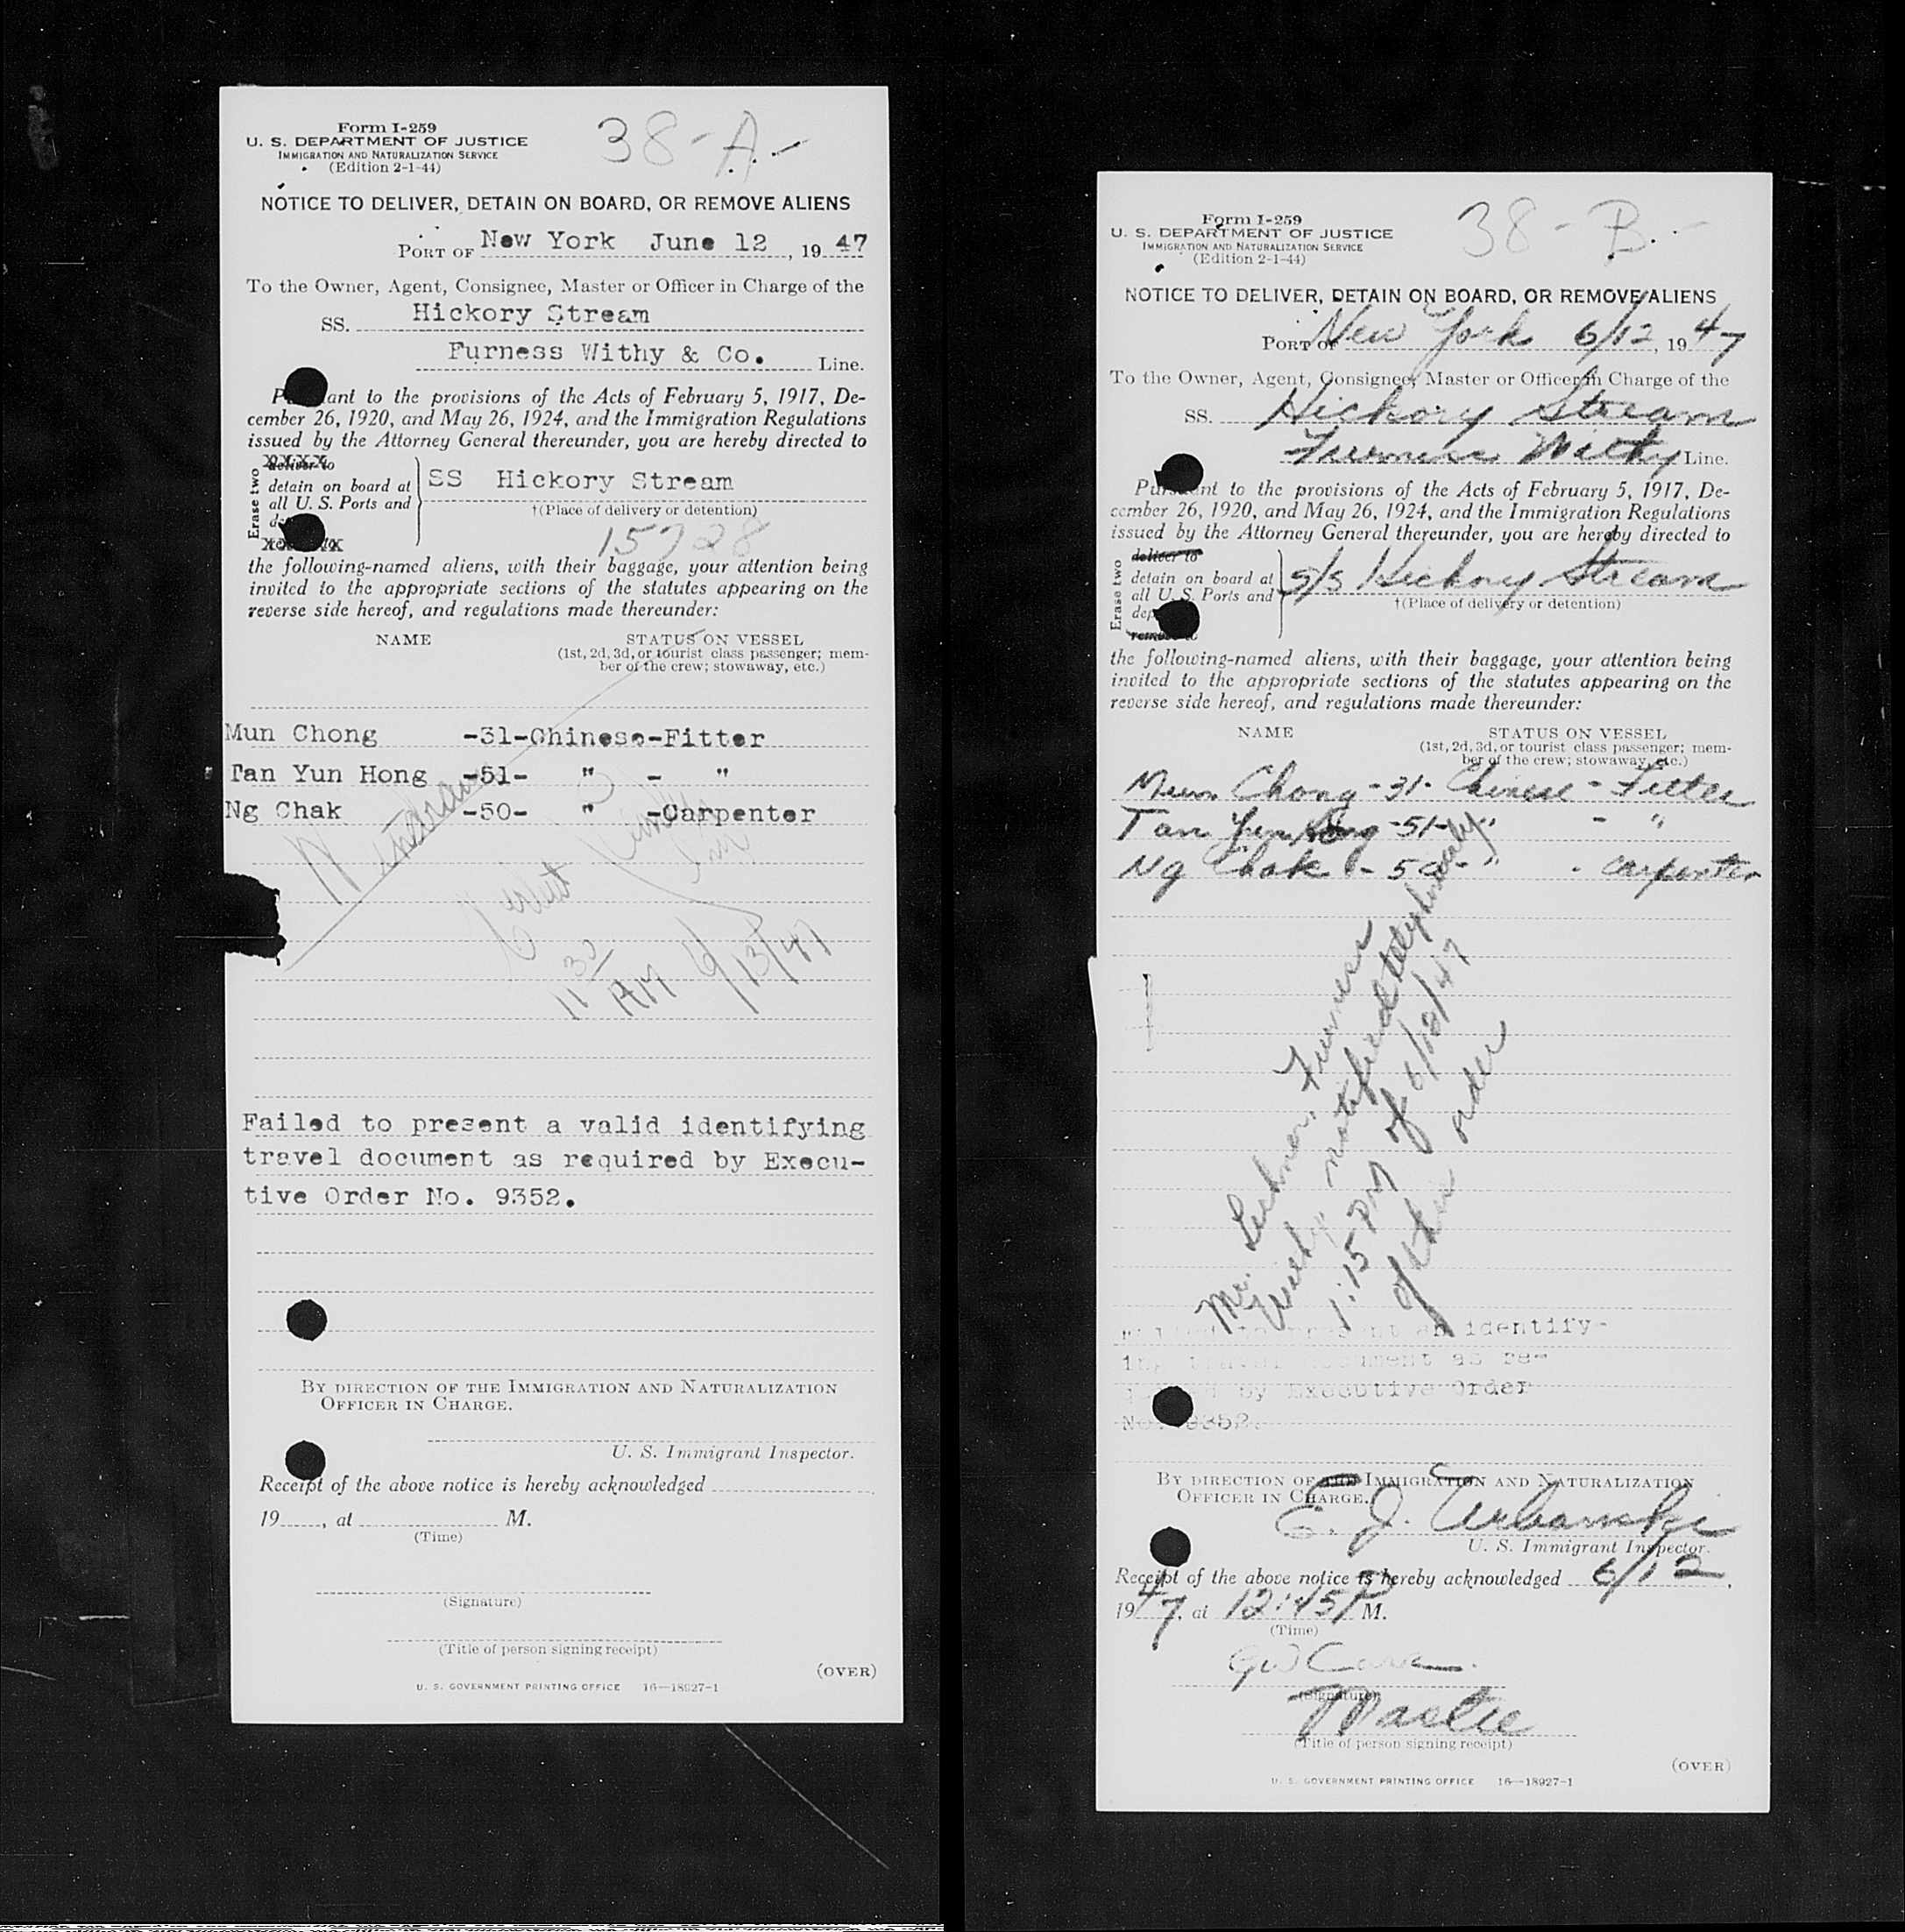 Form I-259
U. S. DEPARTMENT OF JUSTICE
IMMIGRATION AND NATURALIZATION SERVICE
(Edition 2-1-44)
38-A.-
NOTICE TO DELIVER, DETAIN ON BOARD, OR REMOVE ALIENS
PORT OF New York June 12, 1947
To the Owner, Agent, Consignee, Master or Officer in Charge of the
SS. Hickory Stream
Furness Withy & Co. Line.
ant to the provisions of the Acts of February 5, 1917, De-
cember 26, 1920, and May 26, 1924, and the Immigration Regulations
issued by the Attorney General thereunder, you are hereby directed to
Erase two
deliver to
detain on board at
all U. S. Ports and
SS Hickory Stream
†(Place of delivery or detention)
15728
the following-named aliens, with their baggage, your attention being
invited to the appropriate sections of the statutes appearing on the
reverse side hereof, and regulations made thereunder:
NAME STATUS ON VESSEL
(1st, 2d, 3d, or tourist class passenger; mem-
ber of the crew; stowaway, etc.)
Mun Chong -31-Chinese-Fitter
Tan Yun Hong -51- " - "
Ng Chak -50- " -Carpenter
Withdrawn
11 30 AM 6/13/47
Failed to present a valid identifying
travel document as required by Execu-
tive Order No. 9352.
BY DIRECTION OF THE IMMIGRATION AND NATURALIZATION
OFFICER IN CHARGE.
U. S. Immigrant Inspector.
Receipt of the above notice is hereby acknowledged
19, at M.
(Time)
(Signature)
(Title of person signing receipt)
(OVER)
U. S. GOVERNMENT PRINTING OFFICE 16—18927-1
Form I-259
U. S. DEPARTMENT OF JUSTICE
IMMIGRATION AND NATURALIZATION SERVICE
(Edition 2-1-44)
38-B.-
NOTICE TO DELIVER, DETAIN ON BOARD, OR REMOVE ALIENS
PORT OF New York 6/12, 1947
To the Owner, Agent, Consignee, Master or Officer in Charge of the
SS. Hickory Stream
Furness Withy Line.
Pursuant to the provisions of the Acts of February 5, 1917, De-
cember 26, 1920, and May 26, 1924, and the Immigration Regulations
issued by the Attorney General thereunder, you are hereby directed to
Erase two
deliver to
detain on board at
all U. S. Ports and
remove to
S/S Hickory Stream
†(Place of delivery or detention)
the following-named aliens, with their baggage, your attention being
invited to the appropriate sections of the statutes appearing on the
reverse side hereof, and regulations made thereunder:
NAME STATUS ON VESSEL
(1st, 2d, 3d, or tourist class passenger; mem-
ber of the crew; stowaway, etc.)
Mun Chong -31- Chinese - Fitter
Tan Yun Hong -51- " - "
Ng Chak - 50 - " - carpenter
Mr. Furness
Withy notified telephonically
1:15 PM of 6/12/47
of order
to present an identify-
ing travel document as re-
by Executive Order
No. 9352.
BY DIRECTION OF THE IMMIGRATION AND NATURALIZATION
OFFICER IN CHARGE.
E. J. Urbanski
U. S. Immigrant Inspector.
Receipt of the above notice is hereby acknowledged 6/12,
1947, at 12:45 P M.
(Time)
(Signature)
Master
(Title of person signing receipt)
(OVER)
U. S. GOVERNMENT PRINTING OFFICE 16—18927-1